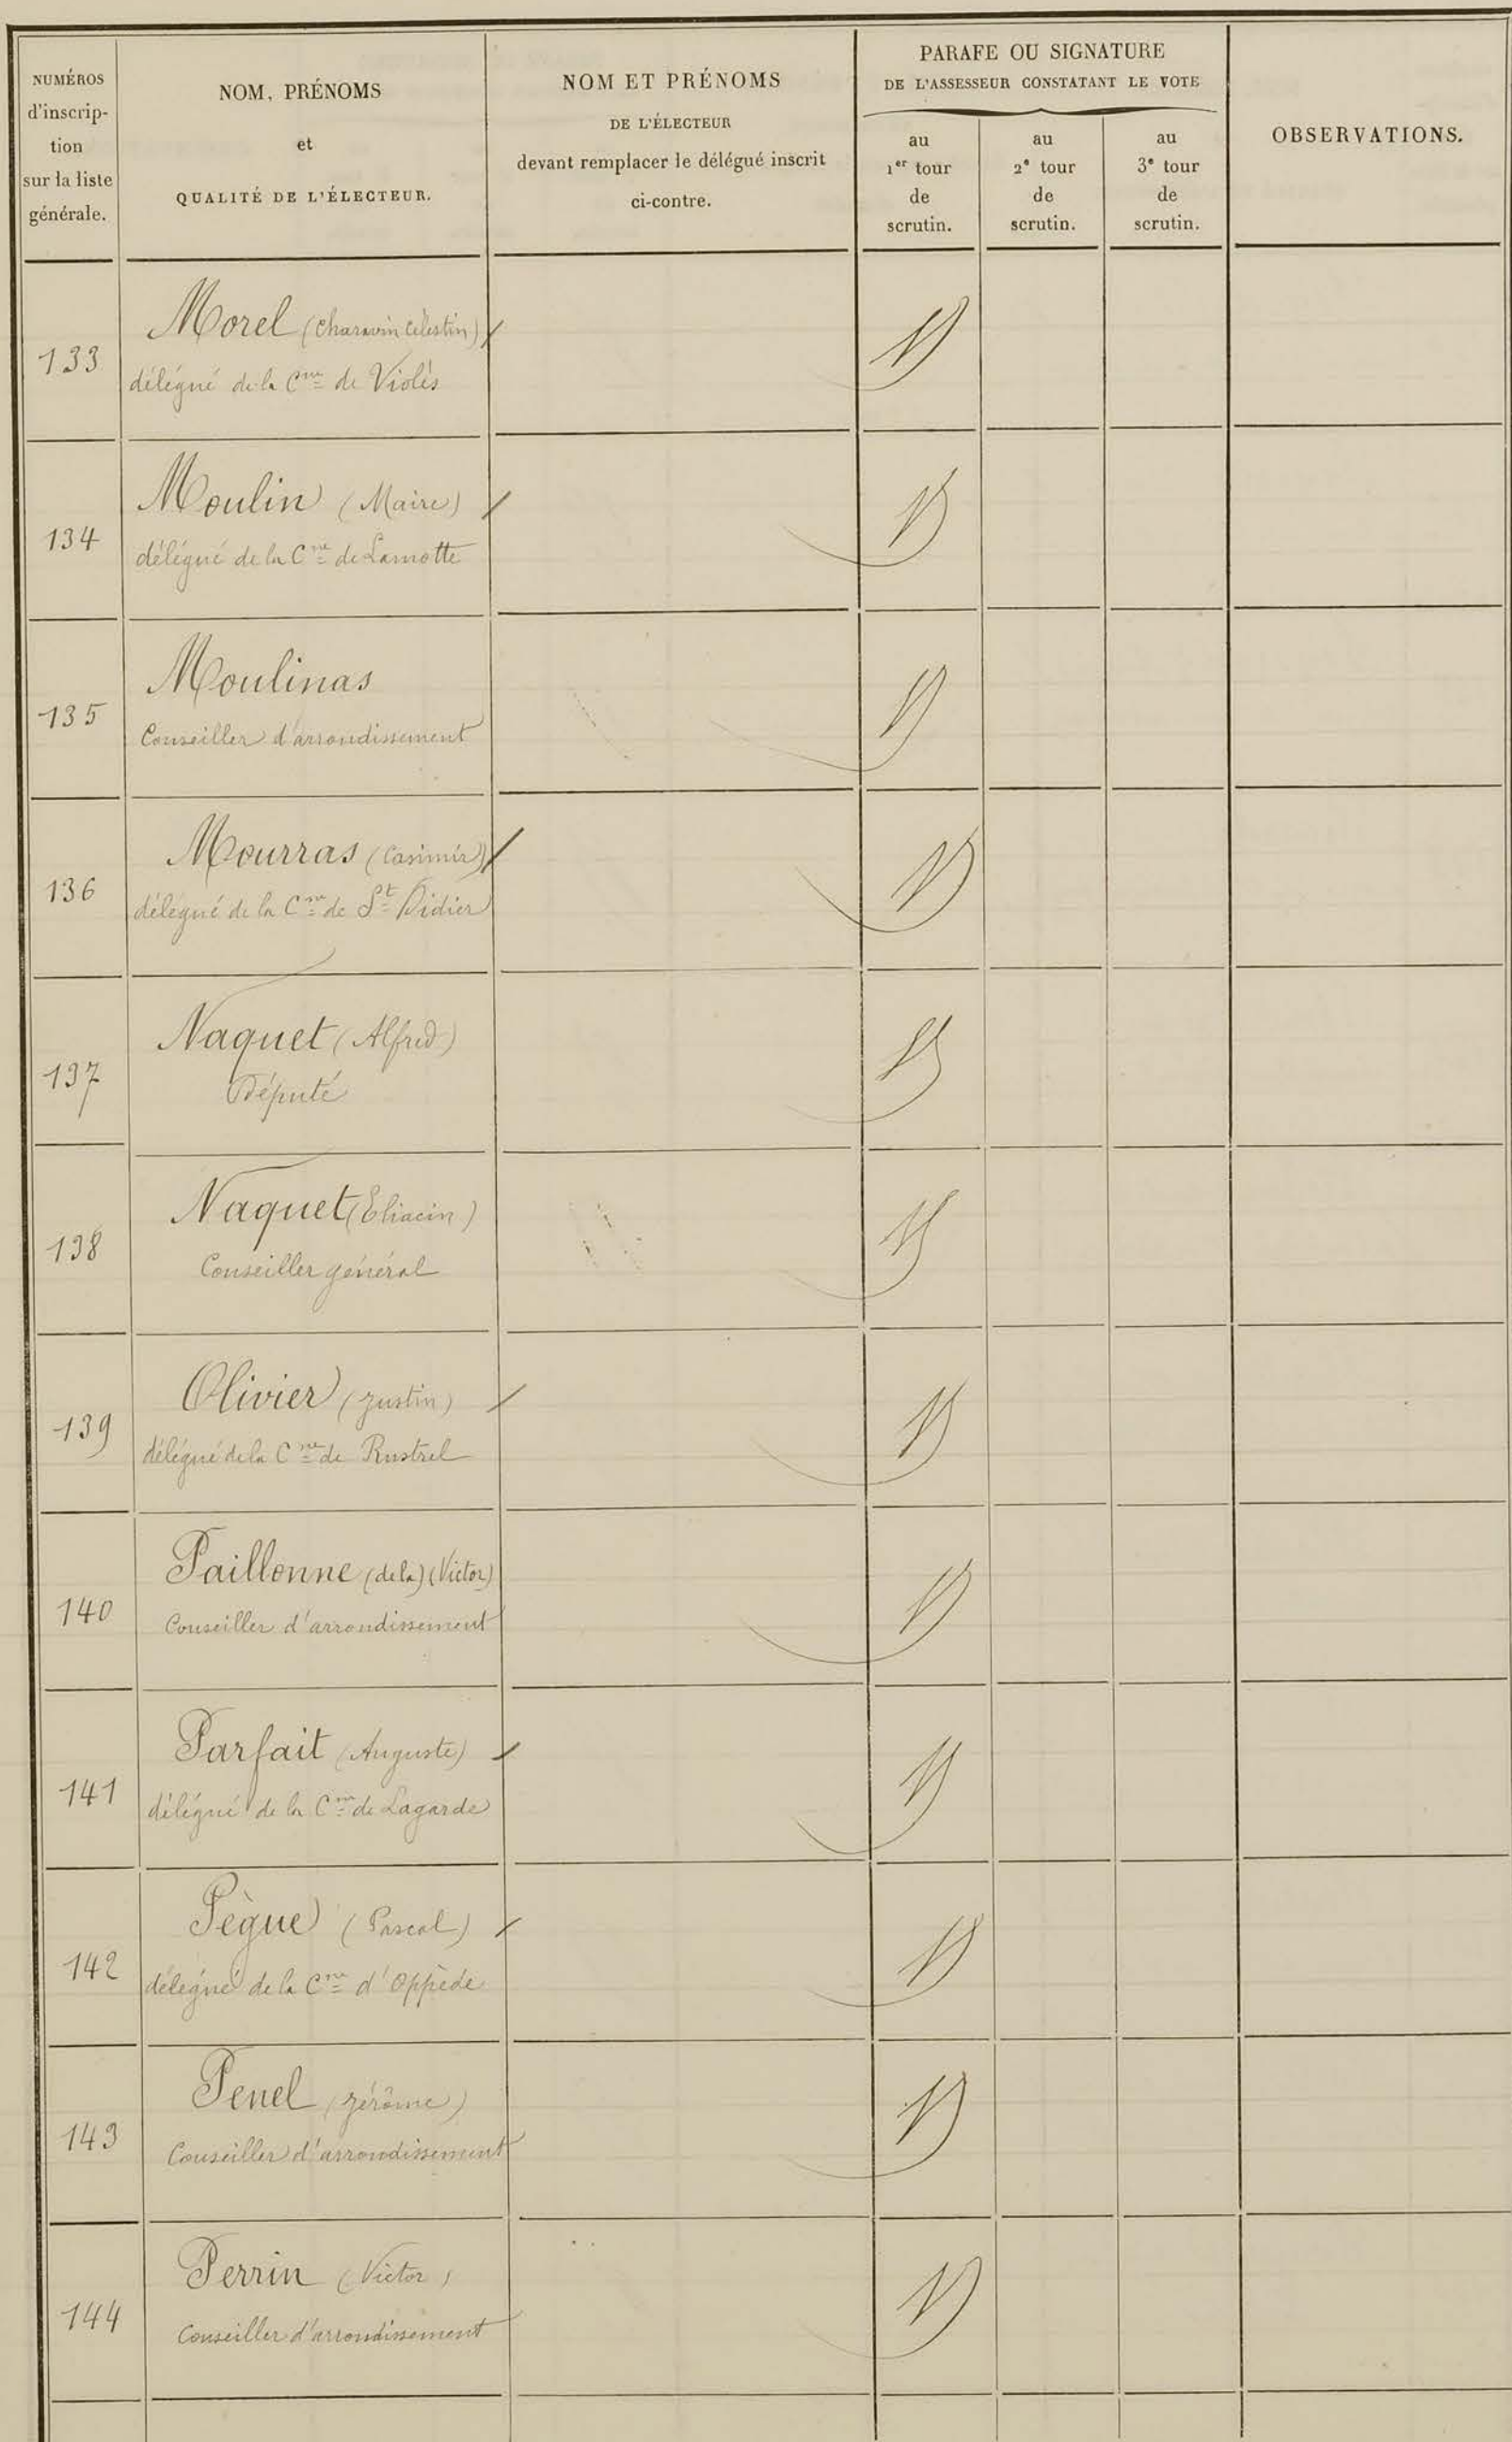 NUMÉROS
d'inscrip-
tion
sur la liste
générale.
NOM, PRÉNOMS
et
QUALITÉ DE L'ÉLECTEUR.
NOM ET PRÉNOMS
DE L'ÉLECTEUR
devant remplacer le délégué inscrit
ci-contre.
PARAFE OU SIGNATURE
DE L'ASSESSEUR CONSTATANT LE VOTE
au
1er tour
de
scrutin.
au
2e tour
de
scrutin.
au
3e tour
de
scrutin.
OBSERVATIONS.
133
Morel (Charavin Célestin)
délégué de la Cne de Violès
134
Moulin (Maire)
délégué de la Cne de Lamotte
135
Moulinas
Conseiller d'arrondissement
136
Mourras (Casimir)
délégué de la Cne de St Didier
137
Naquet (Alfred)
Député
138
Naquet (Eliacin)
Conseiller général
139
Olivier (Justin)
délégué de la Cne de Rustrel
140
Paillonne (de la) (Victor)
Conseiller d'arrondissement
141
Parfait (Auguste)
délégué de la Cne de Lagarde
142
Pègue (Pascal)
délégué de la Cne d'Oppède
143
Penel (Jérôme)
Conseiller d'arrondissement
144
Perrin (Victor)
Conseiller d'arrondissement